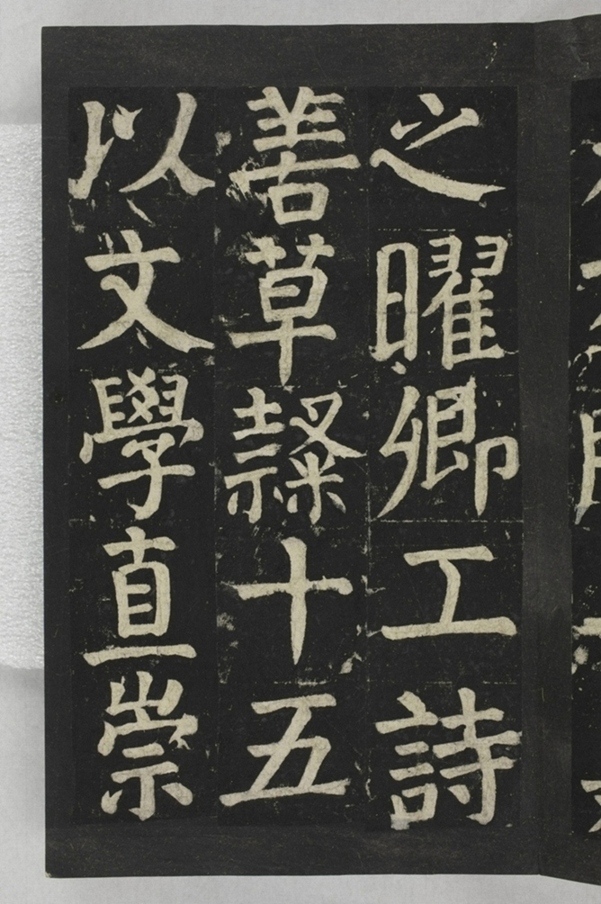 之曜卿工詩
善草隸十五
以文學直崇